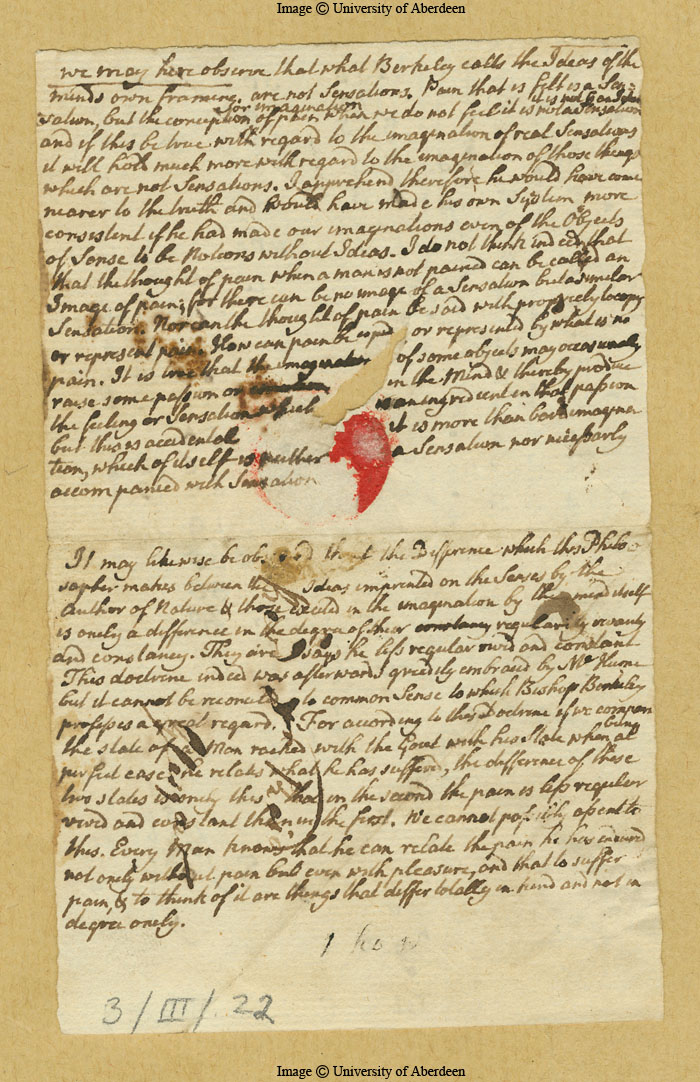 Image © University of Aberdeen
we may here observe that what Berkeley calls the Ideas of the
minds own framing, are not Sensations. Pain that is felt is a Sen-
or imagination it is not
sation, but the conception of pain when we do not feel it is not a Sensation
and if this be true with regard to the imagination of real Sensations
it will hold much more with regard to the imagination of those things
which are not Sensations. I apprehend therefore he would have come
nearer to the truth and would have made his own System more
consistent if he had made our imaginations even of the Objects
of Sense to be Notions without Ideas. I do not think indeed that
that the thought of pain when a man is not pained can be called an
Image of pain; for there can be no image of a Sensation but a similar
Sensation. Nor can the thought of pain be said with propriety to copy
or represent pain. How can pain be copied or represented by what is no
pain. It is true that the imagination of some objects may occasionally
raise some passion or in the Mind & thereby produce
the feeling or Sensation which is an ingredient in that passion
but this is accidental it is more than bare imagina
tion, which of itself is neither a Sensation nor necessarly
accompanied with Sensation
It may likewise be observed that the Difference which this Philo
sopher makes between the Ideas imprinted on the Senses by the
Author of Nature & those excited in the imagination by the mind itself
is onely a difference in the degree of their constancy regularity vivacity
and constancy. They are says he less regular vivid and constant
This doctrine indeed was afterwards greedily embraced by Mr Hume
but it cannot be reconciled to common Sense to which Bishop Berkeley
professes a great regard. For according to this Doctrine if we compare
being
the state of a Man racked with the Gout with his State when at
perfect ease he relates what he has suffered, the difference of these
two states is onely this that in the second the pain is less regular
vivid and constant than in the first. We cannot possibly assent to
this. Every Man knows that he can relate the pain he has endured
not onely without pain but even with pleasure, and that to suffer
pain, & to think of it are things that differ totally in kind and not in
degree onely.
3/III/22
Image © University of Aberdeen